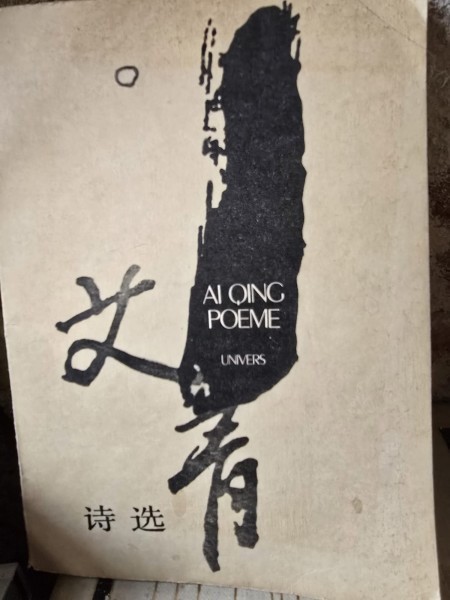 AI QING
POEME
UNIVERS
艾青
诗选